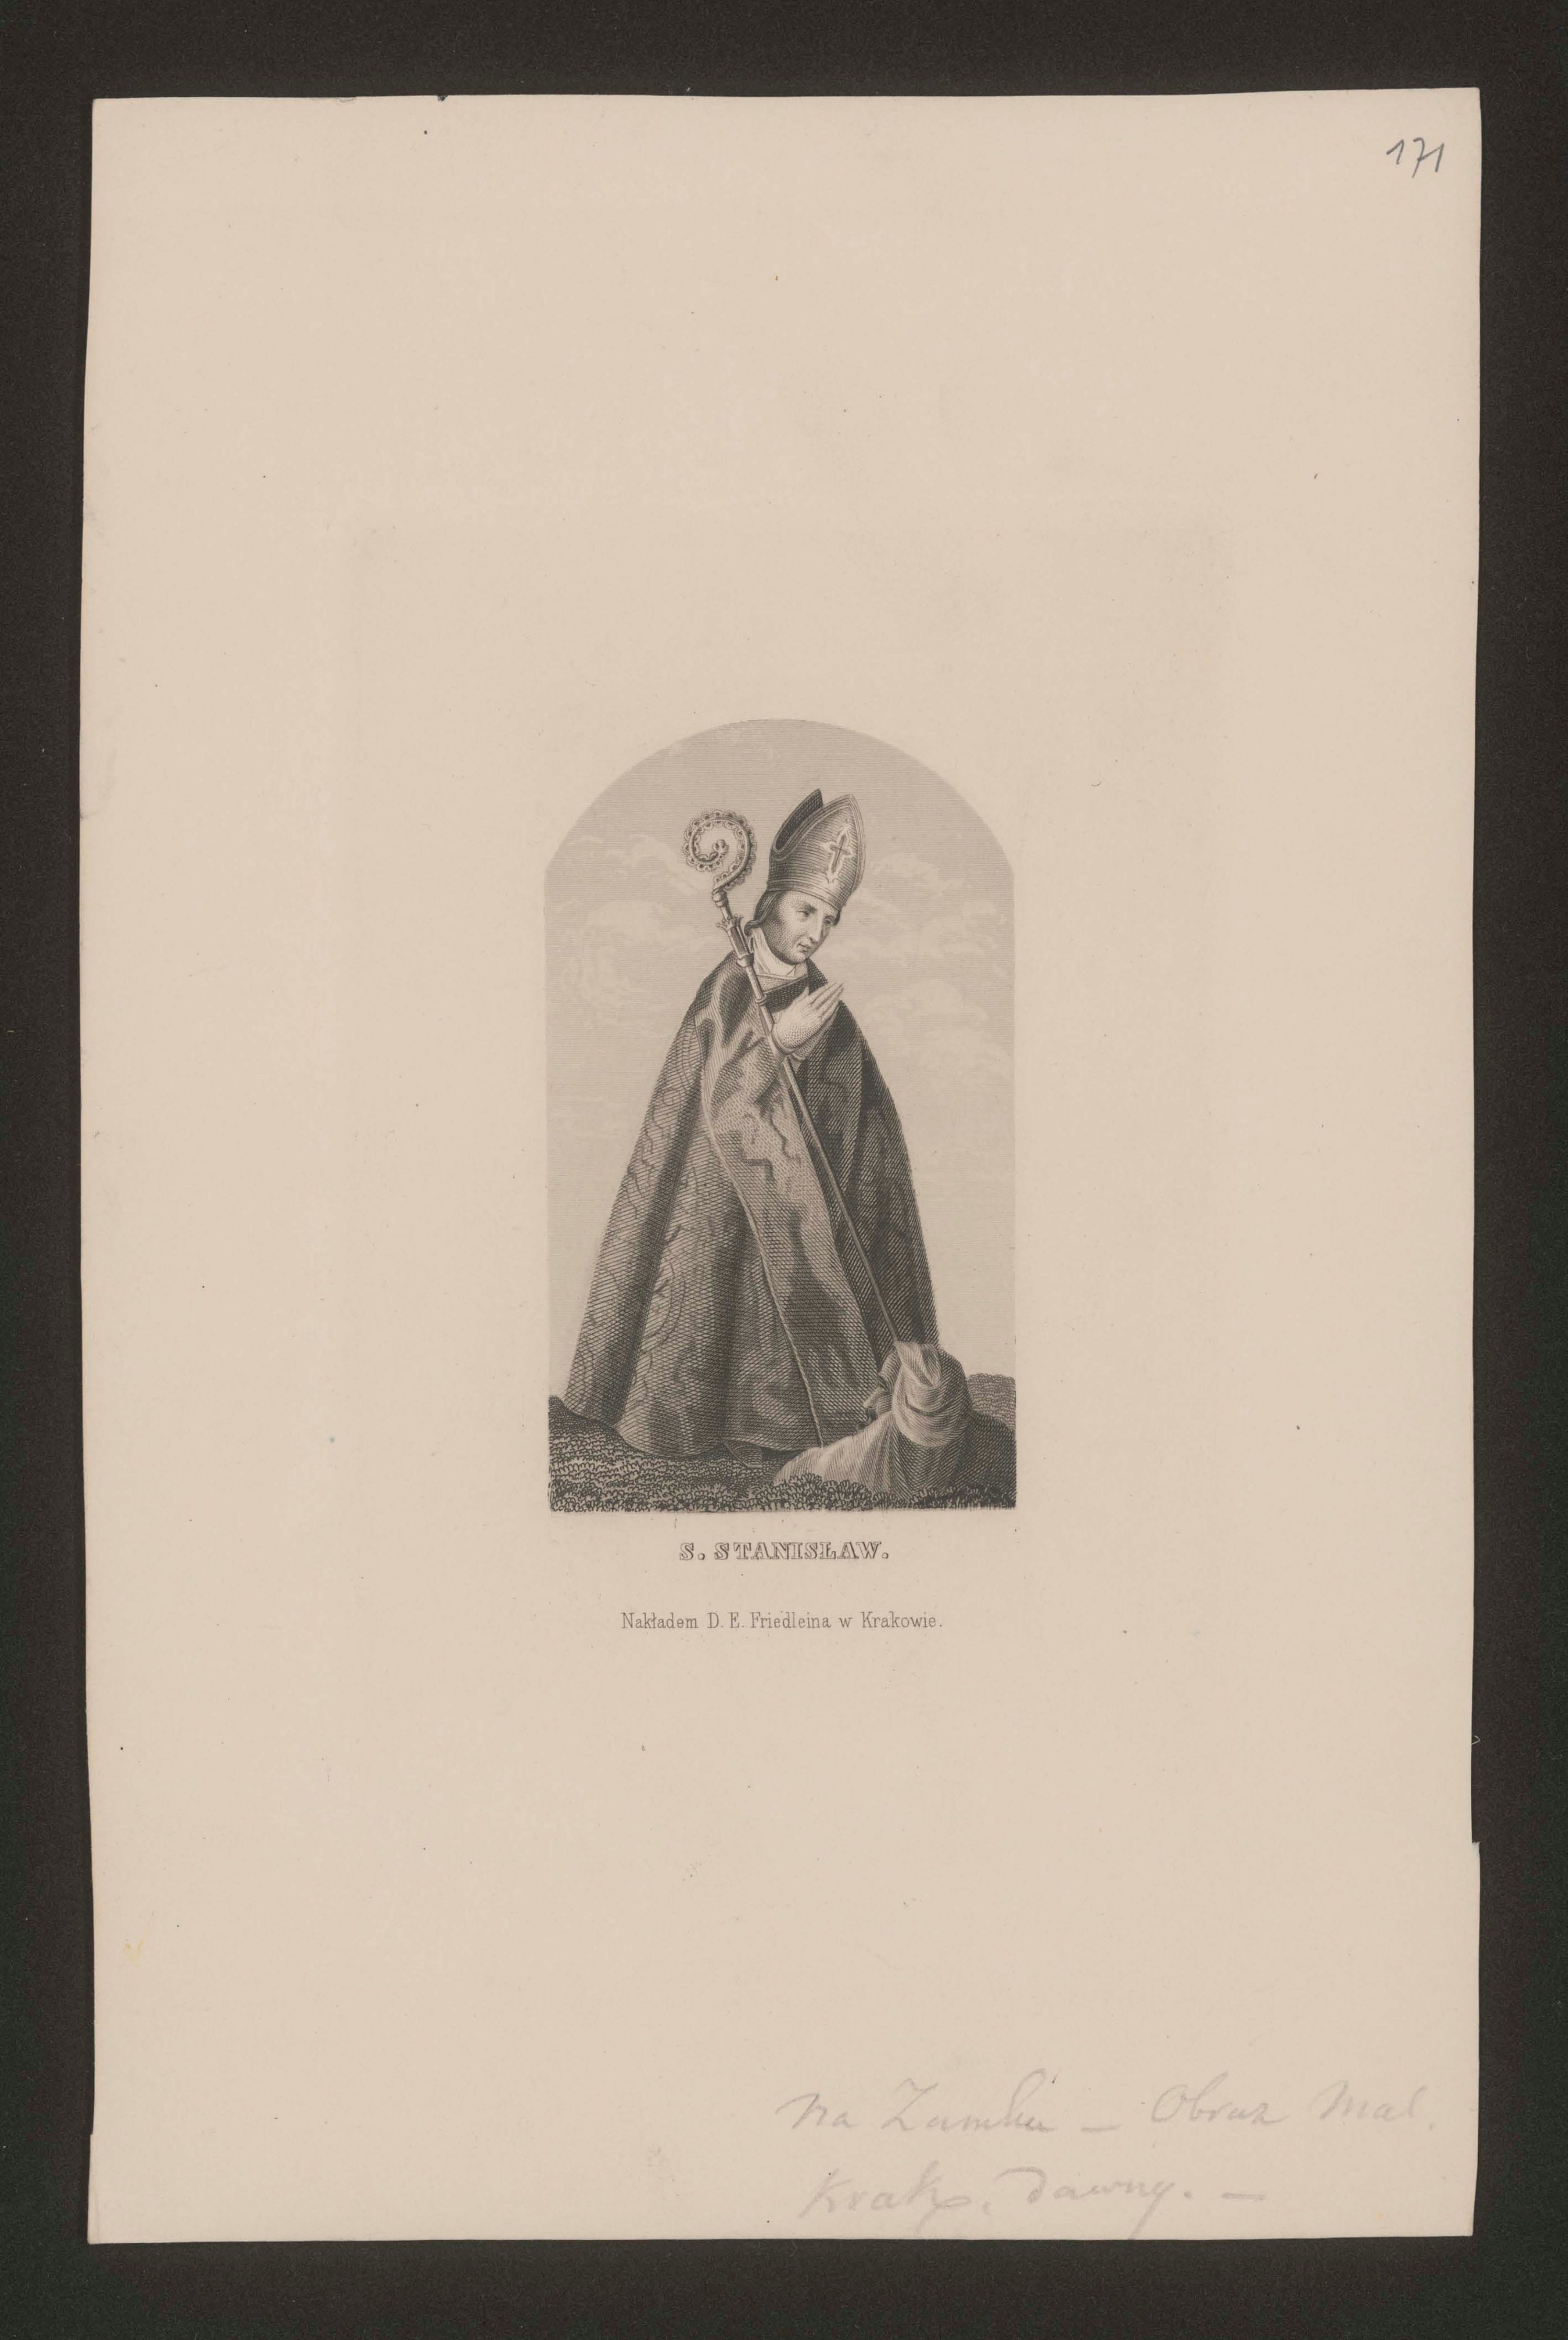 171
S. STANISŁAW.
Nakładem D. E. Friedleina w Krakowie.
Na Zamku – Obraz Mal.
Krak. Dawny. –